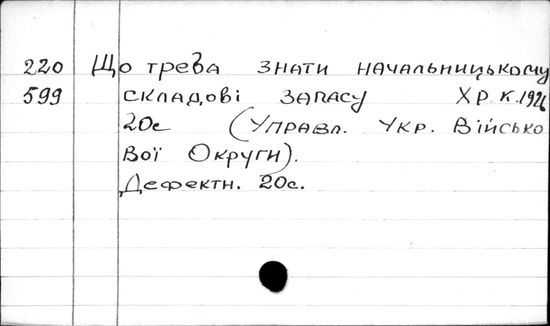 220 Що треба знати начальницькому
599 складові запасу Хрк. 1926
20с (Управл. Укр. Військо
вої Округи).
Дефектн. 20с.